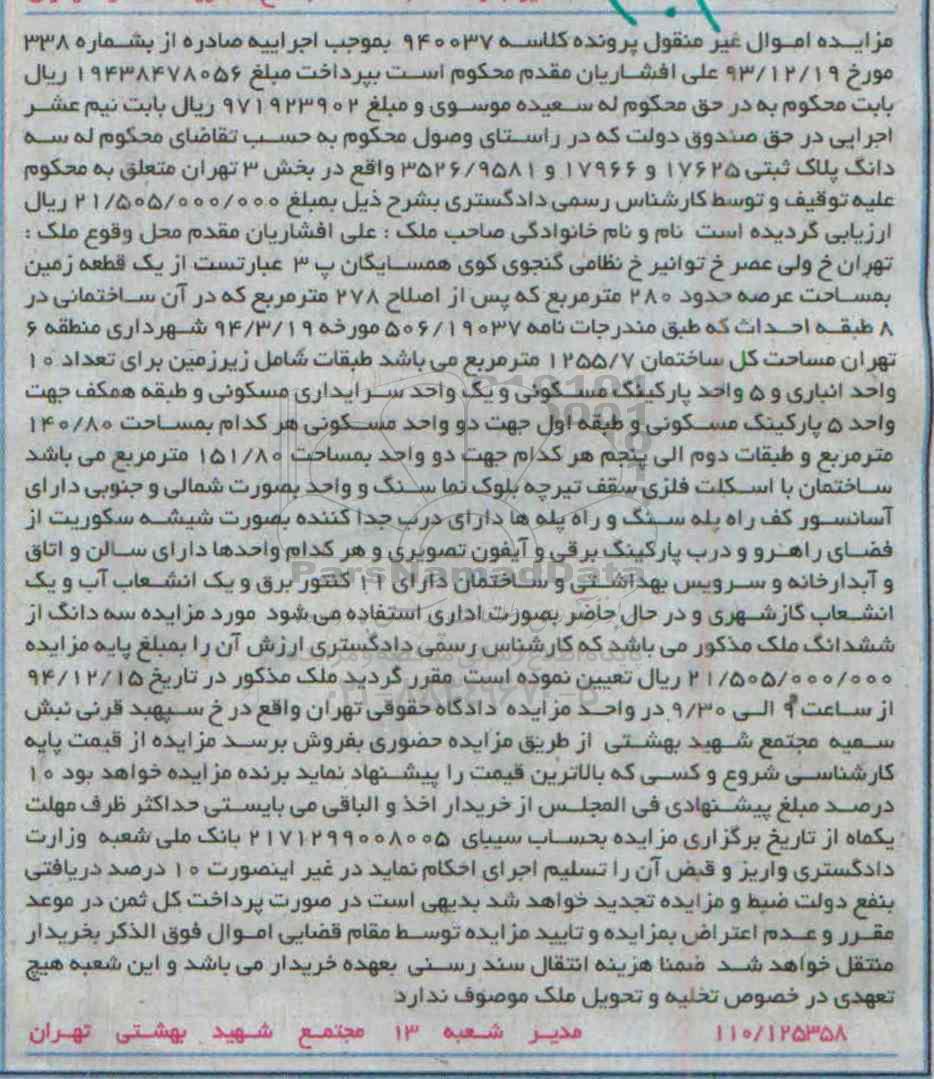 مزایده اموال غیر منقول پرونده کلاسه ۹۴۰۰۳۷ بموجب اجراییه صادره از بشماره ۳۳۸
مورخ ۹۳/۱۲/۱۹ علی افشاریان مقدم محکوم است بپرداخت مبلغ ۱۹۴۳۸۴۷۸۰۵۶ ریال
بابت محکوم به در حق محکوم له سعیده موسوی و مبلغ ۹۷۱۹۲۳۹۰۲ ریال بابت نیم عشر
اجرایی در حق صندوق دولت که در راستای وصول محکوم به حسب تقاضای محکوم له سه
دانگ پلاک ثبتی ۱۷۶۲۵ و ۱۷۹۶۶ و ۳۵۲۶/۹۵۸۱ واقع در بخش ۳ تهران متعلق به محکوم
علیه توقیف و توسط کارشناس رسمی دادگستری بشرح ذیل بمبلغ ۲۱/۵۰۵/۰۰۰/۰۰۰ ریال
ارزیابی گردیده است نام و نام خانوادگی صاحب ملک : علی افشاریان مقدم محل وقوع ملک :
تهران خ ولی عصر خ توانیر خ نظامی گنجوی کوی همسایگان پ ۳ عبارتست از یک قطعه زمین
بمساحت عرصه حدود ۲۸۰ مترمربع که پس از اصلاح ۲۷۸ مترمربع که در آن ساختمانی در
۸ طبقه احداث که طبق مندرجات نامه ۵۰۶/۱۹۰۳۷ مورخه ۹۴/۳/۱۹ شهرداری منطقه ۶
تهران مساحت کل ساختمان ۱۲۵۵/۷ مترمربع می باشد طبقات شامل زیرزمین برای تعداد ۱۰
واحد انباری و ۵ واحد پارکینگ مسکونی و یک واحد سرایداری مسکونی و طبقه همکف جهت
واحد ۵ پارکینگ مسکونی و طبقه اول جهت دو واحد مسکونی هر کدام بمساحت ۱۴۰/۸۰
مترمربع و طبقات دوم الی پنجم هر کدام جهت دو واحد بمساحت ۱۵۱/۸۰ مترمربع می باشد
ساختمان با اسکلت فلزی سقف تیرچه بلوک نما سنگ و واحد بصورت شمالی و جنوبی دارای
آسانسور کف راه پله سنگ و راه پله ها دارای درب جدا کننده بصورت شیشه سکوریت از
فضای راهرو و درب پارکینگ برقی و آیفون تصویری و هر کدام واحدها دارای سالن و اتاق
و آبدارخانه و سرویس بهداشتی و ساختمان دارای ۱۱ کنتور برق و یک انشعاب آب و یک
انشعاب گاز شهری و در حال حاضر بصورت اداری استفاده می شود مورد مزایده سه دانگ از
ششدانگ ملک مذکور می باشد که کارشناس رسمی دادگستری ارزش آن را بمبلغ پایه مزایده
۲۱/۵۰۵/۰۰۰/۰۰۰ ریال تعیین نموده است مقرر گردید ملک مذکور در تاریخ ۹۴/۱۲/۱۵
از ساعت ۹ الی ۹/۳۰ در واحد مزایده دادگاه حقوقی تهران واقع در خ سپهبد قرنی نبش
سمیه مجتمع شهید بهشتی از طریق مزایده حضوری بفروش برسد مزایده از قیمت پایه
کارشناسی شروع و کسی که بالاترین قیمت را پیشنهاد نماید برنده مزایده خواهد بود ۱۰
درصد مبلغ پیشنهادی فی المجلس از خریدار اخذ و الباقی می بایستی حداکثر ظرف مهلت
یکماه از تاریخ برگزاری مزایده بحساب سیبای ۲۱۷۱۲۹۹۰۰۸۰۰۵ بانک ملی شعبه وزارت
دادگستری واریز و قبض آن را تسلیم اجرای احکام نماید در غیر اینصورت ۱۰ درصد دریافتی
بنفع دولت ضبط و مزایده تجدید خواهد شد بدیهی است در صورت پرداخت کل ثمن در موعد
مقرر و عدم اعتراض بمزایده و تایید مزایده توسط مقام قضایی اموال فوق الذکر بخریدار
منتقل خواهد شد ضمنا هزینه انتقال سند رسنی بعهده خریدار می باشد و این شعبه هیچ
تعهدی در خصوص تخلیه و تحویل ملک موصوف ندارد
۱۱۰/۱۲۵۳۵۸ مدیر شعبه ۱۳ مجتمع شهید بهشتی تهران
ParsNamadData